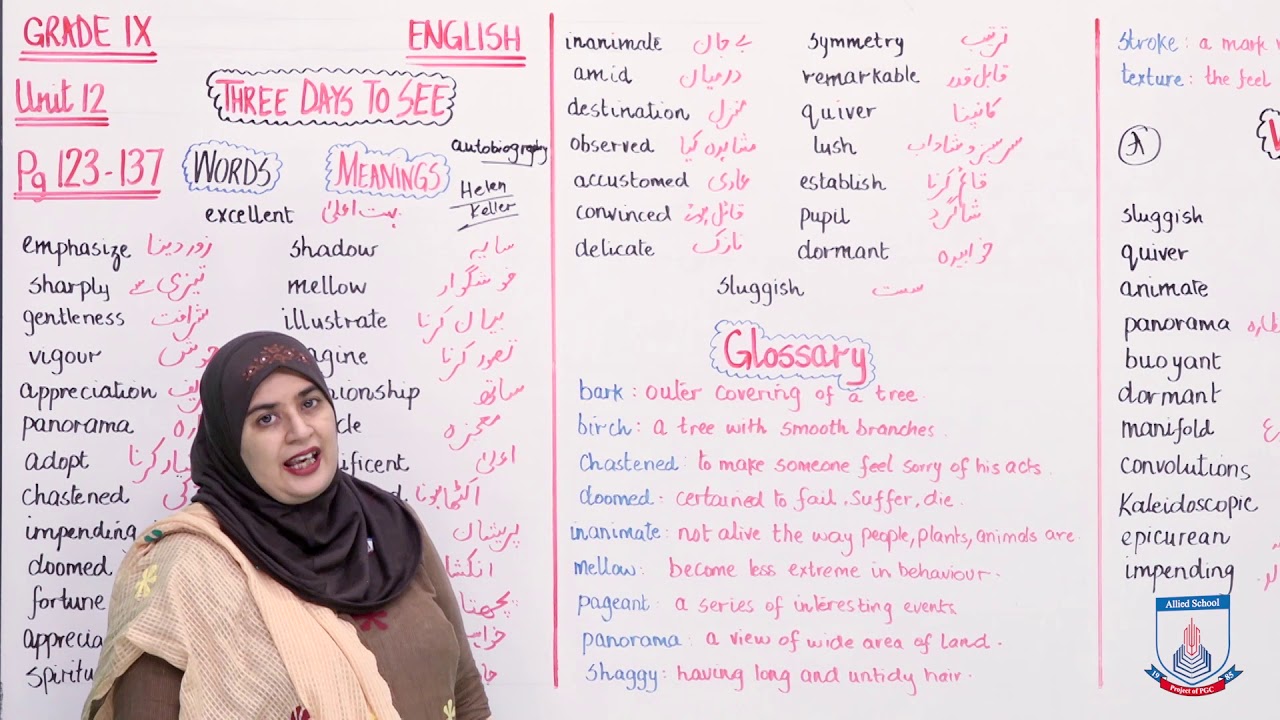 GRADE IX ENGLISH
Unit 12 THREE DAYS TO SEE
Pg 123-137 WORDS MEANINGS autobiography
Helen
Keller
excellent بہت اعلیٰ
emphasize زور دینا shadow سایہ
sharply تیزی سے mellow خوشگوار
gentleness شرافت illustrate بیان کرنا
vigour جوش agine تصور کرنا
appreciation nionship ساتھ
panorama cle معجزہ
adopt ificent اعلیٰ
chastened اکٹھا ہونا
impending پریشان
doomed
fortune
apprecia
spiritu
inanimate بے جان symmetry ترتیب
amid درمیاں remarkable قابل قدر
destination منزل quiver کانپنا
observed مشاہدہ کیا lush سرسبز و شاداب
accustomed عادی establish قائم کرنا
convinced قائل ہونا pupil شاگرد
delicate نازک dormant خوابیدہ
sluggish سست
Glossary
bark: outer covering of a tree
birch: a tree with smooth branches.
Chastened: to make someone feel sorry of his acts.
doomed: certained to fail, suffer, die.
inanimate: not alive the way people, plants, animals are.
mellow: become less extreme in behaviour.
pageant: a series of interesting events
panorama: a view of wide area of land.
shaggy: having long and untidy hair.
stroke: a mark
texture: the feel
sluggish
quiver
animate
panorama
buoyant
dormant
manifold
convolutions
Kaleidoscopic
epicurean
impending
Allied School
19 85
Project of PGC